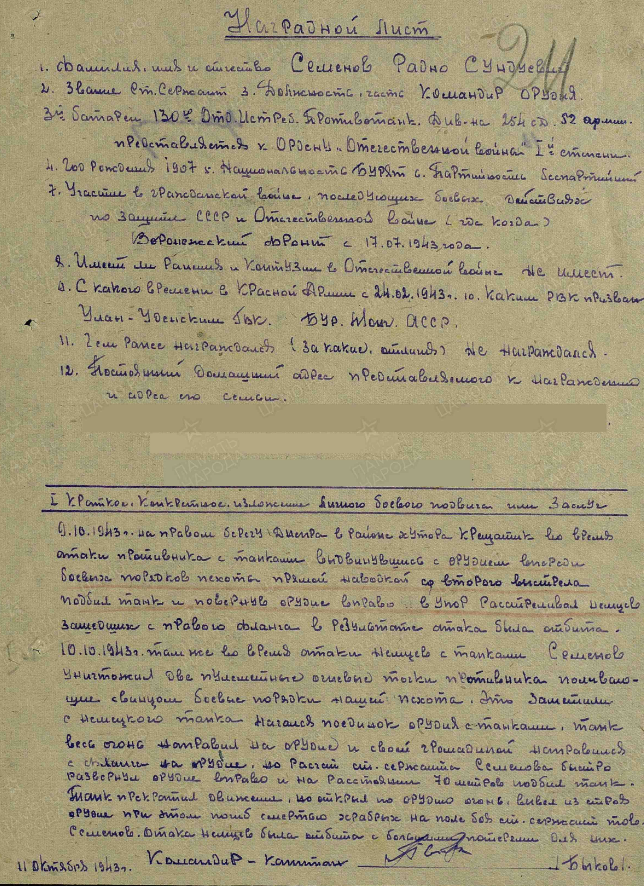 Наградной Лист
24
1. Фамилия, имя и отчество Семенов Радно Сундуевич
2. Звание Ст. Сержант 3. Должность, часть Командир орудия.
3ей батареи 130го Отд. Истреб. Противотанк. Див-на 254 сд. 52 армии.
представляется к Ордену "Отечественной войны" Iй степени.
4. Год рождения 1907 5. Национальность Бурят 6. Партийность беспартийный
7. Участие в гражданской войне, последующих боевых действиях
по защите СССР и Отечественной войне (где когда)
Воронежский фронт с 17.07.1943 года.
8. Имеет ли Ранения и Контузии в Отечественной войне Не имеет.
9. С какого времени в Красной Армии с 24.02.1943г. 10. Каким РВК призван
Улан-Удэнским ГВК. Бур. Монг. АССР.
11. Чем ранее награждался (За какие отличия) Не награждался.
12. Постоянный домашний адрес представляемого к награждению
и адрес его семьи.
I Краткое, Конкретное, изложение личного боевого подвига или Заслуг
9.10.1943г. на правом берегу Днепра в районе хутора Крещатик во время
атаки противника с танками выдвинувшись с орудием впереди
боевых порядков пехоты прямой наводкой со второго выстрела
подбил танк и повернув орудие вправо в упор Расстреливал немцев
зашедших с правого фланга в результате атака была отбита.
10.10.1943г. там же во время атаки немцев с танками Семенов
уничтожил две пулеметные огневые точки противника поливаю-
щие свинцом боевые порядки нашей пехоты. Это заметили
с немецкого танка начался поединок орудия с танками, танк
весь огонь направил на орудие и своей громадиной направился
с фланга на орудие, но расчет ст. сержанта Семенова быстро
развернул орудие вправо и на расстоянии 70 метров подбил танк.
Танк прекратил движение, но открыл по орудию огонь, вывел из строя
орудие при этом погиб смертью храбрых на поле боя ст. сержант тов.
Семенов. Атака немцев была отбита с большими потерями для них.
11 октября 1943г. Командир - капитан /Быков/.